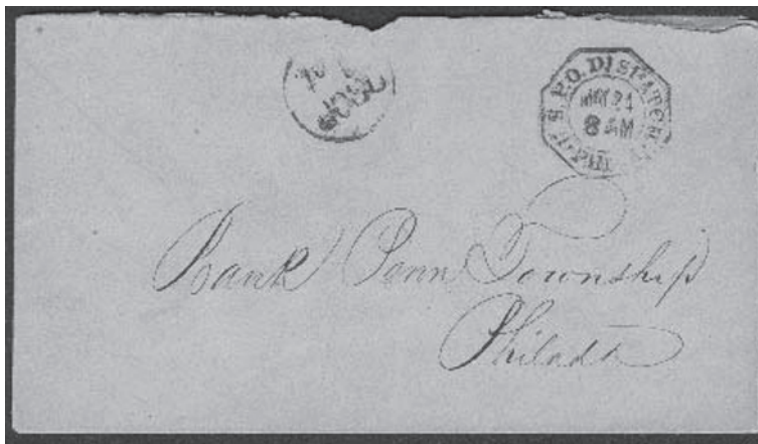 U.S.P.O. DISPATCH
MAY 21
8 AM
PHILA
Bank Penn Township
Philada